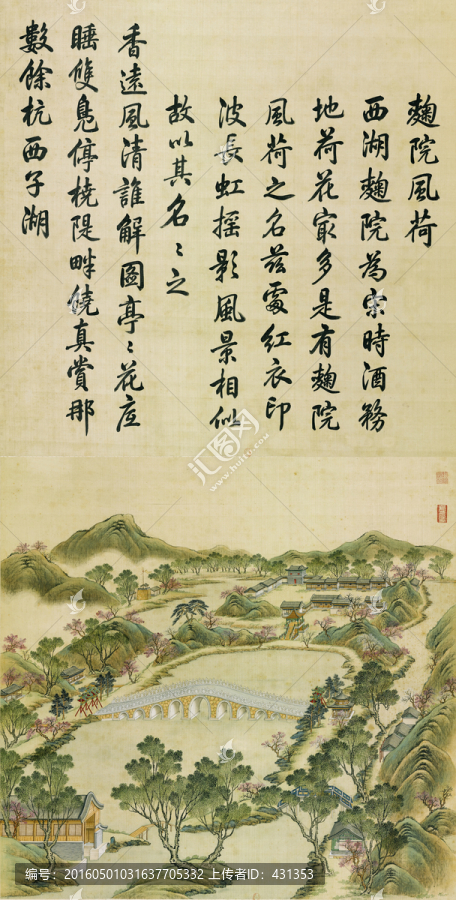 麯院風荷
西湖麯院為宋時酒務
地荷花最多是有麯院
風荷之名兹處紅衣印
波長虹摇影風景相似
故以其名名之
香遠風清誰解圖亭亭花底
睡雙鳬停橈隄畔饒真賞那
數餘杭西子湖
汇图网
编号：20160501031637705332 上传者ID：431353